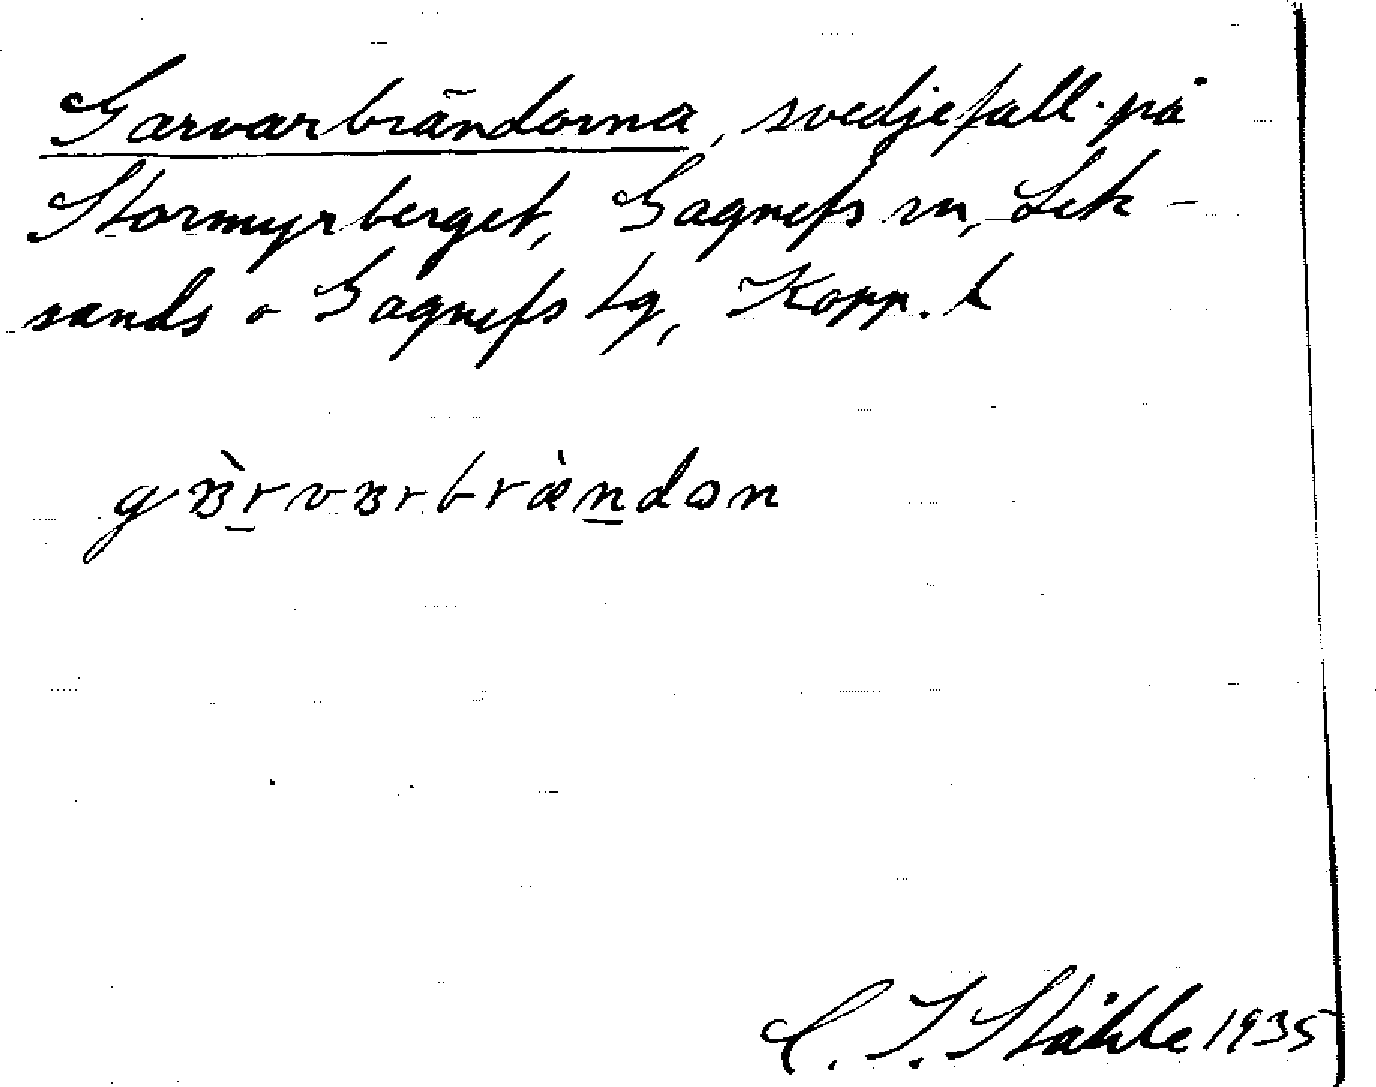 Garvarbrändorna, svedjefall på
Stormyrberget, Gagnefs sn, Lek-
sands o Gagnefs tg, Kopp. l
gʙ̀rvʙrbræ̀ndɔn
C. I. Ståhle 1935